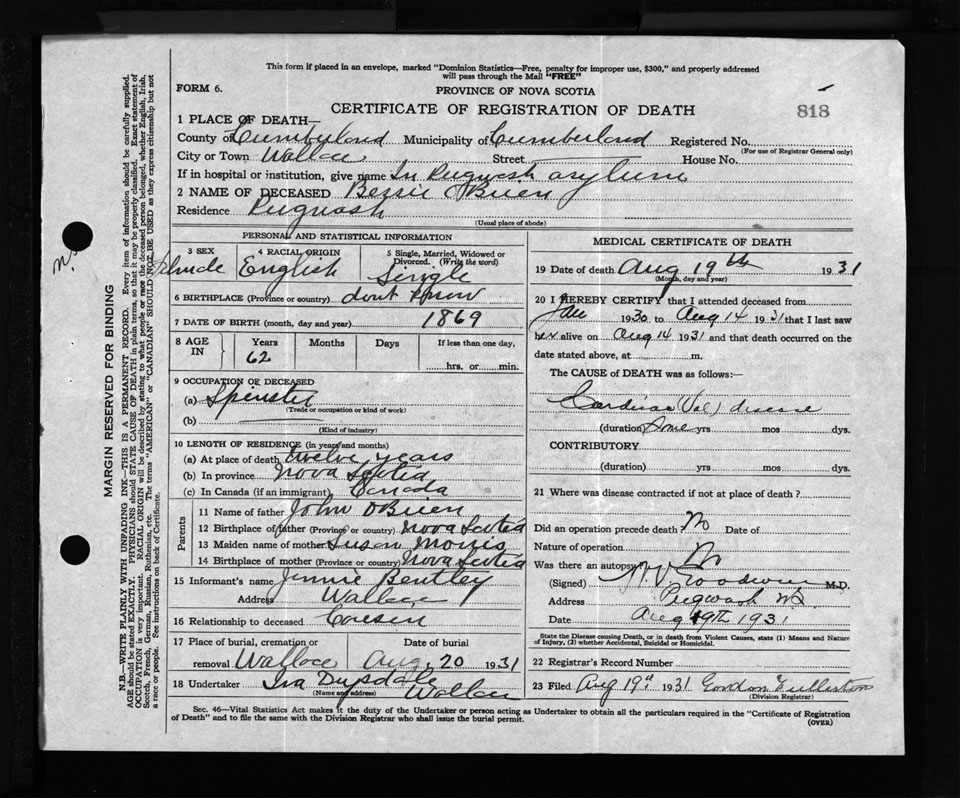 This form if placed in an envelope, marked "Dominion Statistics—Free, penalty for improper use, $300," and properly addressed
will pass through the Mail "FREE"
FORM 6.
PROVINCE OF NOVA SCOTIA
CERTIFICATE OF REGISTRATION OF DEATH
818
1 PLACE OF DEATH—
County of Cumberland Municipality of Cumberland Registered No.
(For use of Registrar General only)
City or Town Wallace Street House No.
If in hospital or institution, give name In Pugwash asylum
2 NAME OF DECEASED Bessie O'Brien
Residence Pugwash
(Usual place of abode)
PERSONAL AND STATISTICAL INFORMATION
3 SEX 4 RACIAL ORIGIN 5 Single, Married, Widowed or
Divorced. (Write the word)
English Single
6 BIRTHPLACE (Province or country) dont know
7 DATE OF BIRTH (month, day and year) 1869
8 AGE IN Years Months Days If less than one day,
62 hrs. or min.
9 OCCUPATION OF DECEASED
(a) Spinster
(Trade or occupation or kind of work)
(b)
(Kind of industry)
10 LENGTH OF RESIDENCE (in years and months)
(a) At place of death twelve years
(b) In province Nova Scotia
(c) In Canada (if an immigrant) Canada
Parents
11 Name of father John O'Brien
12 Birthplace of father (Province or country) Nova Scotia
13 Maiden name of mother Susan Morris
14 Birthplace of mother (Province or country) Nova Scotia
15 Informant's name Jennie Bentley
Address Wallace
16 Relationship to deceased Cousin
17 Place of burial, cremation or Date of burial
removal Wallace Aug. 20 1931
18 Undertaker Ira Wallace
(Name and address)
MEDICAL CERTIFICATE OF DEATH
19 Date of death Aug 19th 1931
(Month, day and year)
20 I HEREBY CERTIFY that I attended deceased from
Jan 1930 to Aug 14 1931 that I last saw
her alive on Aug 14 1931 and that death occurred on the
date stated above, at m.
The CAUSE of DEATH was as follows:—
Cardiac (Val) disease
(duration) Some yrs mos dys.
CONTRIBUTORY
(duration) yrs mos dys.
21 Where was disease contracted if not at place of death?
Did an operation precede death No Date of
Nature of operation
Was there an autopsy No
(Signed) M.D.
Address Pugwash NS
Date Aug 19th 1931
State the Disease causing Death, or in death from Violent Causes, state (1) Means and Nature
of Injury, (2) whether Accidental, Suicidal or Homicidal.
22 Registrar's Record Number
23 Filed Aug 19th 1931 Gordon Fullerton
(Division Registrar)
Sec. 46—Vital Statistics Act makes it the duty of the Undertaker or person acting as Undertaker to obtain all the particulars required in the "Certificate of Registration
of Death" and to file the same with the Division Registrar who shall issue the burial permit.
(OVER)
MARGIN RESERVED FOR BINDING
N.B.—WRITE PLAINLY WITH UNFADING INK—THIS IS A PERMANENT RECORD. Every item of information should be carefully supplied.
AGE should be stated EXACTLY. PHYSICIANS should STATE CAUSE OF DEATH in plain terms, so that it may be properly classified. Exact statement of
OCCUPATION is very important. RACIAL ORIGIN will be described by stating to what people or race the deceased person belonged, whether English, Irish,
Scotch, French, German, Russian, Ruthenian, etc. The terms "AMERICAN" or "CANADIAN" SHOULD NOT BE USED as they express citizenship but not
a race or people. See instructions on back of Certificate.